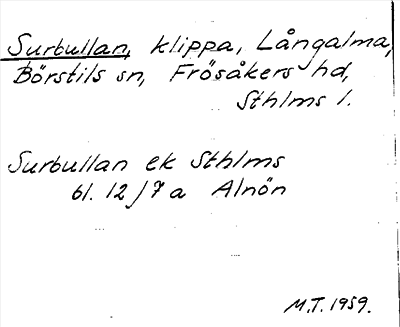 Surbullan, klippa, Långalma,
Börstils sn, Frösåkers hd,
Sthlms l.
Surbullan ek Sthlms
bl. 12 / 7 a Alnön
M.T. 1959.